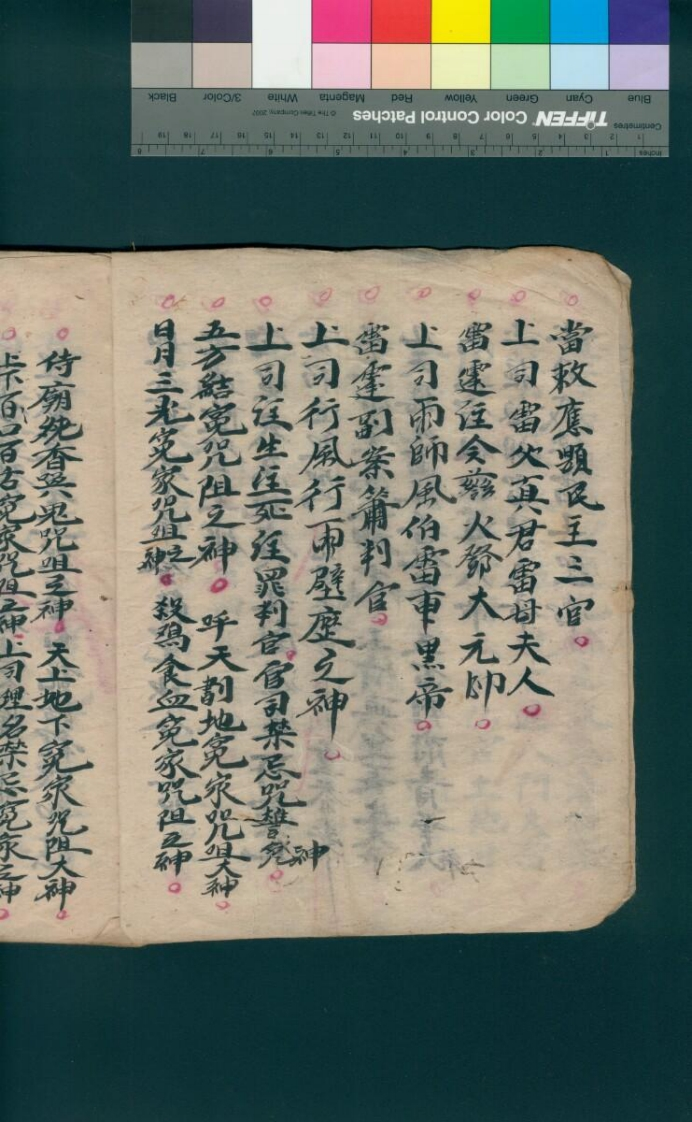 Blue Cyan Green Yellow Red Magenta White 3/Color Black
TIFFEN Color Control Patches
© The Tiffen Company, 2007
Centimetres
Inches
當救應顯民主三官
上司雷火真君雷母夫人
雷霆注令火鄧大元帥
上司雨師風伯雷車黑帝
雷霆副案簫判官
上司行風行雨壁歷之神
上司注生注死注罪判官官司禁忌咒誓冤神
五方結冤咒阻之神 呼天割地冤家咒咀大神
日月三光冤家咒咀之神 殺鴉食血冤家咒阻之神
侍廟純香興鬼咒咀之神 天上地下冤家咒阻大神
上下百口百舌冤家咒阻之神 上司禁忌冤家之神